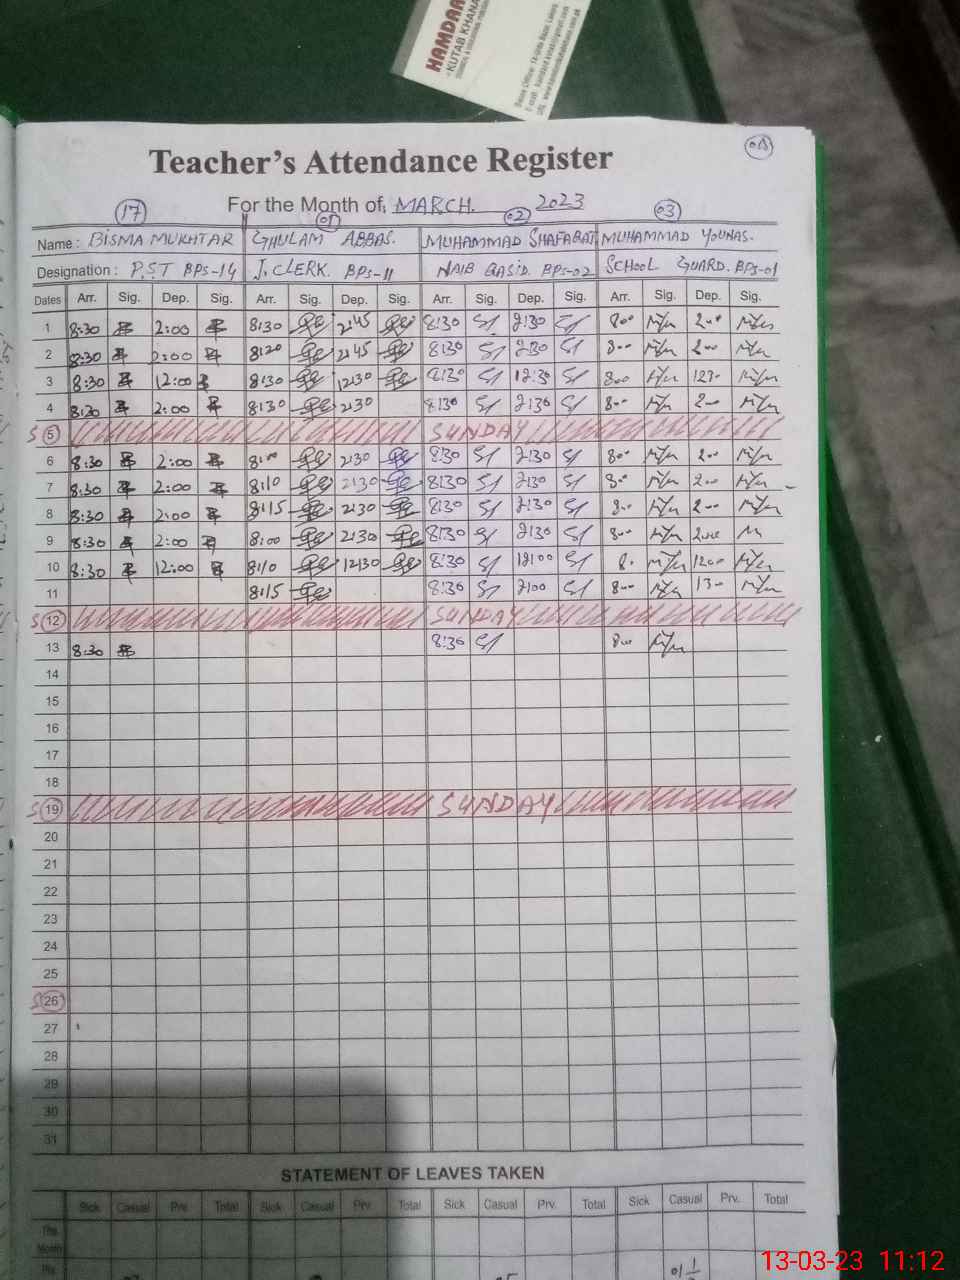 HAMDARD
KUTAB KHANA
Teacher's Attendance Register
For the Month of, MARCH. 2023
17 01 02 03
Name : BISMA MUKHTAR GHULAM ABBAS. MUHAMMAD SHAFAQAT MUHAMMAD YOUNAS.
Designation : P.S.T BPS-14 J. CLERK. BPS-11 NAIB QASID. BPS-02 SCHOOL GUARD. BPS-01
Dates Arr. Sig. Dep. Sig. Arr. Sig. Dep. Sig. Arr. Sig. Dep. Sig. Arr. Sig. Dep. Sig.
1 8:30 2:00 8:30 2:45 8:30 2:30 800 200
2 8:30 2:00 8:20 2:45 8:30 2:30 800 200
3 8:30 12:00 8:30 12:30 8:30 12:30 800 1230
4 8:30 2:00 8:30 2:30 8:30 2:30 800 200
S 5 SUNDAY
6 8:30 2:00 8:00 2:30 8:30 2:30 800 200
7 8:30 2:00 8:10 2:30 8:30 2:30 800 200
8 8:30 2:00 8:15 2:30 8:30 2:30 800 200
9 8:30 2:00 8:00 2:30 8:30 2:30 800 200
10 8:30 12:00 8:10 12:30 8:30 12:00 80 1200
11 8:15 8:30 2:00 800 130
S 12 SUNDAY
13 8:30 8:30 800
14
15
16
17
18
S 19 SUNDAY
20
21
22
23
24
25
S 26
27
28
29
30
31
STATEMENT OF LEAVES TAKEN
Sick Casual Prv. Total Sick Casual Prv. Total Sick Casual Prv. Total Sick Casual Prv. Total
This
Month
13-03-23 11:12